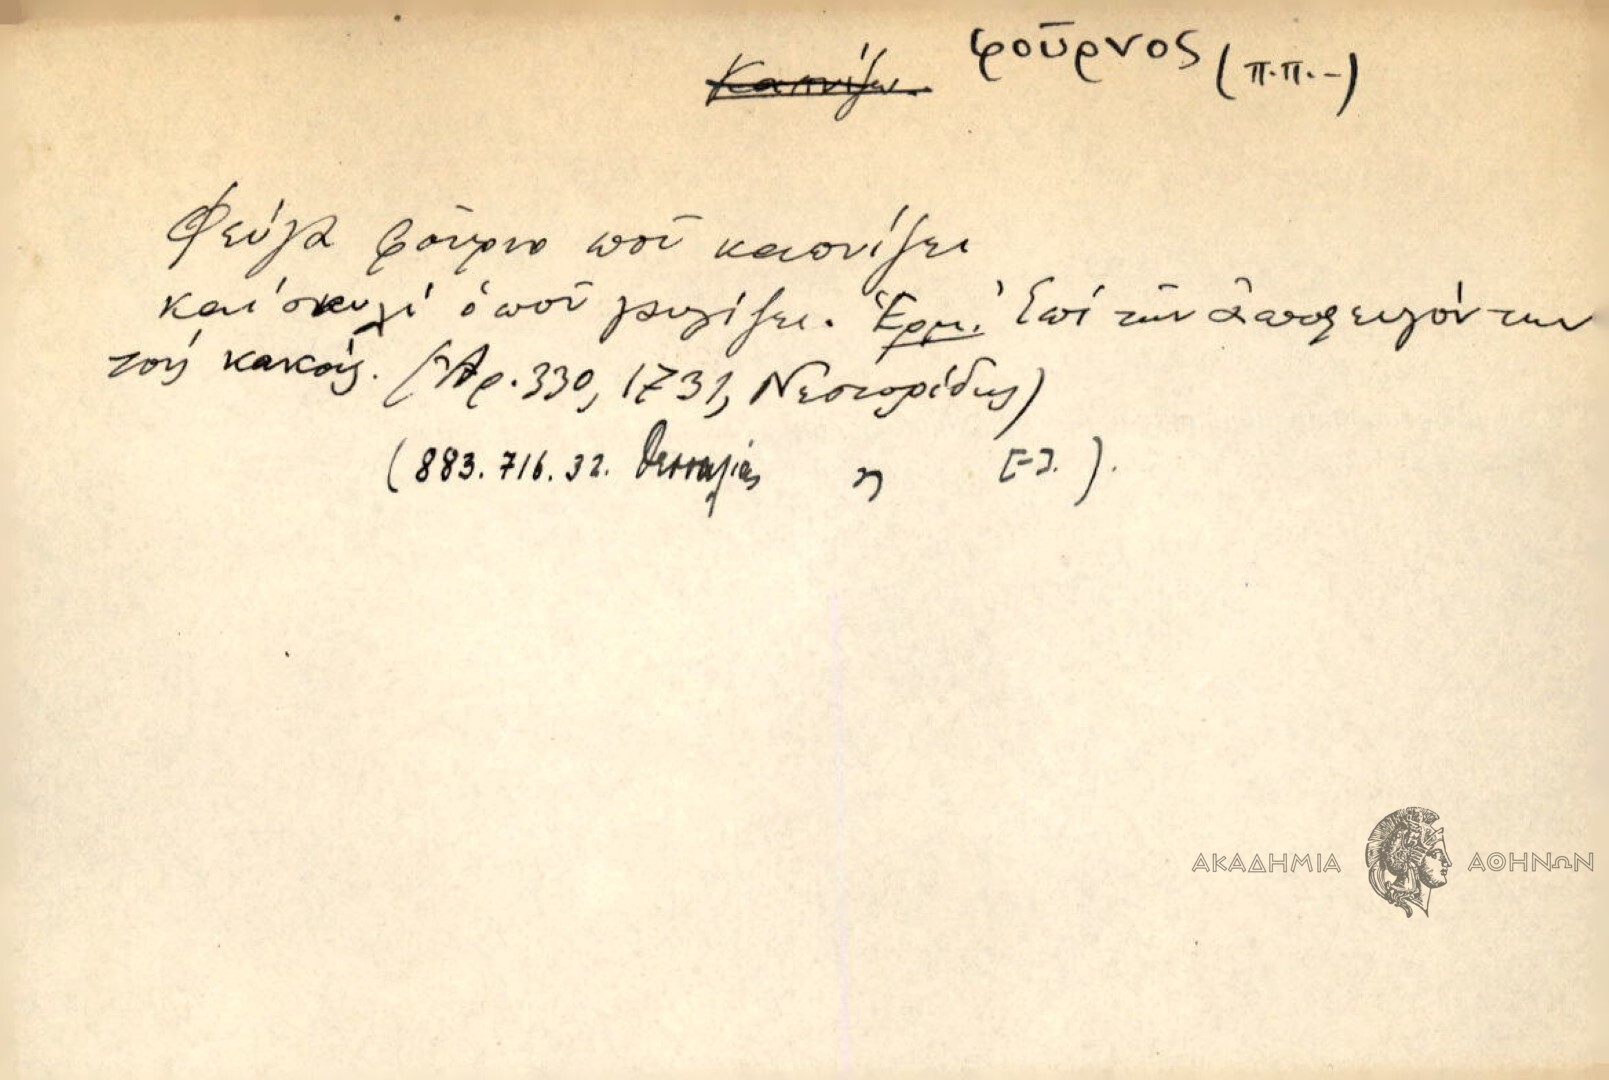 ~~Καπνίζω~~ φοῦρνος (π.π.-)
Φεύγα φοῦρνο ποῦ καπνίζει
καί σκυλί ὁποῦ γρυλίζει. Ἑρμ. Ἐπί τῶν ἀποφευγόντων
τούς κακούς. (Ἀρ. 330, 1731, Νεστορίδης)
(883.716.32. Θεσσαλίας η [-].).
ΑΚΑΔΗΜΙΑ ΑΘΗΝΩΝ